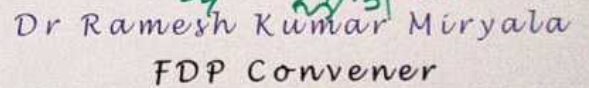 Dr Ramesh Kumar Miryala
FDP Convener